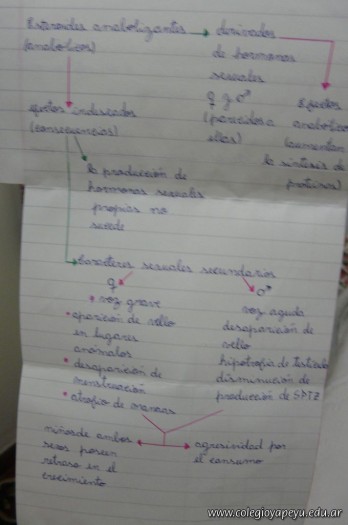 Esteroides anabolizantes → derivados
(anabólicos)
de hormonas
sexuales
♀ y ♂
(parecidos a
ellas)
Efectos
anabólicos
(aumentan
la síntesis de
proteínas)
efectos indeseados
(consecuencias)
la producción de
hormonas sexuales
propias no
sucede
Caracteres sexuales secundarios
♀
• voz grave
• aparición de vello
en lugares
anómalos
• desaparición de
menstruación
• atrofia de mamas
♂
voz aguda
desaparición de
vello
hipotrofia de Testículo
disminución de
producción de SPTZ
niños de ambos
sexos poseen
retraso en el
crecimiento
agresividad por
el consumo
www.colegioyapeyu.edu.ar